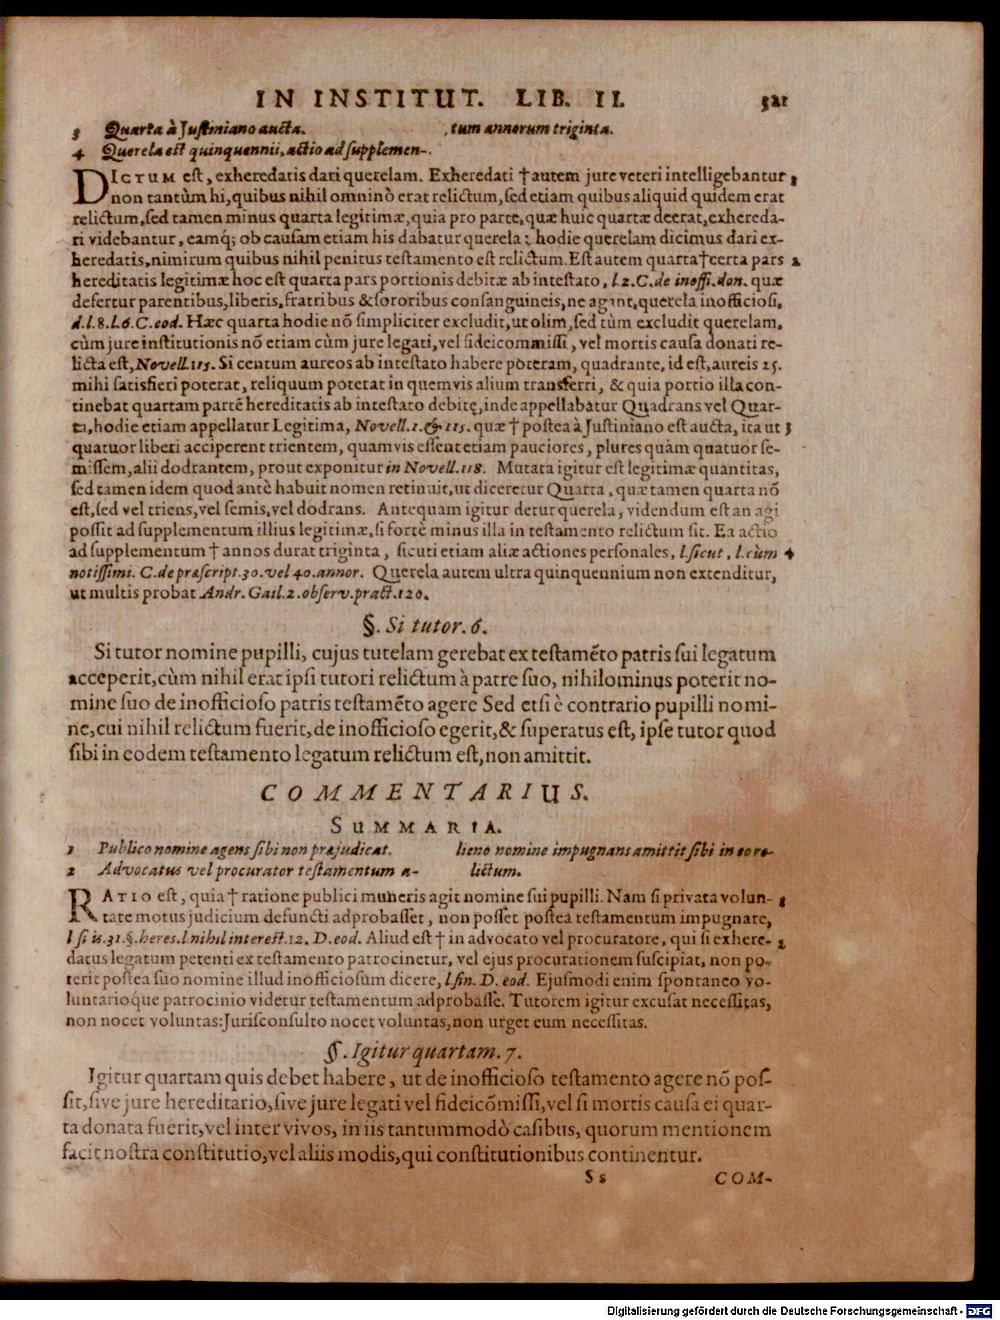 IN INSTITUT. LIB. II. 321
3 Quarta à Justiniano aucta.
4 Querela est quinquennii, actio ad supplemen-
tum annorum triginta.
DICTUM est, exheredatis dari querelam. Exheredati † autem jure veteri intelligebantur 1
non tantùm hi, quibus nihil omninò erat relictum, sed etiam quibus aliquid quidem erat
relictum, sed tamen minus quarta legitimæ, quia pro parte, quæ huic quartæ deerat, exhereda-
ri videbantur, eamq́; ob causam etiam his dabatur querela: hodie querelam dicimus dari ex-
heredatis, nimirum quibus nihil penitus testamento est relictum. Est autem quarta † certa pars 2
hereditatis legitimæ hoc est quarta pars portionis debitæ ab intestato, l. 2. C. de inoffi. don. quæ
defertur parentibus, liberis, fratribus & sororibus consanguineis, ne agant, querela inofficiosi,
d. l. 8. l. 6. C. eod. Hæc quarta hodie nō simpliciter excludit, ut olim, sed tùm excludit querelam,
cùm jure institutionis nō etiam cùm jure legati, vel fideicommissi, vel mortis causa donati re-
licta est, Novell. 115. Si centum aureos ab intestato habere poteram, quadrante, id est, aureis 25.
mihi satisfieri poterat, reliquum poterat in quemvis alium transferri, & quia portio illa con-
tinebat quartam partē hereditatis ab intestato debitę, inde appellabatur Quadrans vel Quar-
ta, hodie etiam appellatur Legitima, Novell. 1. & 115. quæ † postea à Justiniano est aucta, ita ut 3
quatuor liberi acciperent trientem, quamvis essent etiam pauciores, plures quàm quatuor se-
missem, alii dodrantem, prout exponitur in Novell. 118. Mutata igitur est legitimæ quantitas,
sed tamen idem quod antè habuit nomen retinuit, ut diceretur Quarta, quæ tamen quarta nō
est, sed vel triens, vel semis, vel dodrans. Antequam igitur detur querela, videndum est an agi
possit ad supplementum illius legitimæ, si fortè minus illa in testamento relictum sit. Ea actio
ad supplementum † annos durat triginta, sicuti etiam aliæ actiones personales, l. sicut, l. cùm 4
notissimi. C. de præscript. 30. vel 40. annor. Querela autem ultra quinquennium non extenditur,
ut multis probat Andr. Gail. 2. observ. pract. 120.
§. Si tutor. 6.
Si tutor nomine pupilli, cujus tutelam gerebat ex testamēto patris sui legatum
acceperit, cùm nihil erat ipsi tutori relictum à patre suo, nihilominus poterit no-
mine suo de inofficioso patris testamēto agere Sed etsi è contrario pupilli nomi-
ne, cui nihil relictum fuerit, de inofficioso egerit, & superatus est, ipse tutor quod
sibi in eodem testamento legatum relictum est, non amittit.
COMMENTARIUS.
SUMMARIA.
1 Publico nomine agens sibi non præjudicat.
2 Advocatus vel procurator testamentum a-
lieno nomine impugnans amittit sibi in eo re-
lictum.
RATIO est, quia † ratione publici muneris agit nomine sui pupilli. Nam si privata volun- 1
tate motus judicium defuncti adprobasset, non posset postea testamentum impugnare,
l si is. 31. §. heres. l. nihil interest. 12. D. eod. Aliud est † in advocato vel procuratore, qui si exhere- 2
datus legatum petenti ex testamento patrocinetur, vel ejus procurationem suscipiat, non po-
terit postea suo nomine illud inofficiosum dicere, l. fin. D. eod. Ejusmodi enim spontaneo vo-
luntarioque patrocinio videtur testamentum adprobasse. Tutorem igitur excusat necessitas,
non nocet voluntas: Jurisconsulto nocet voluntas, non urget eum necessitas.
§. Igitur quartam. 7.
Igitur quartam quis debet habere, ut de inofficioso testamento agere nō pos-
sit, sive jure hereditario, sive jure legati vel fideicōmissi, vel si mortis causa ei quar-
ta donata fuerit, vel inter vivos, in iis tantummodò casibus, quorum mentionem
facit nostra constitutio, vel aliis modis, qui constitutionibus continentur.
Ss COM-
Digitalisierung gefördert durch die Deutsche Forschungsgemeinschaft - DFG